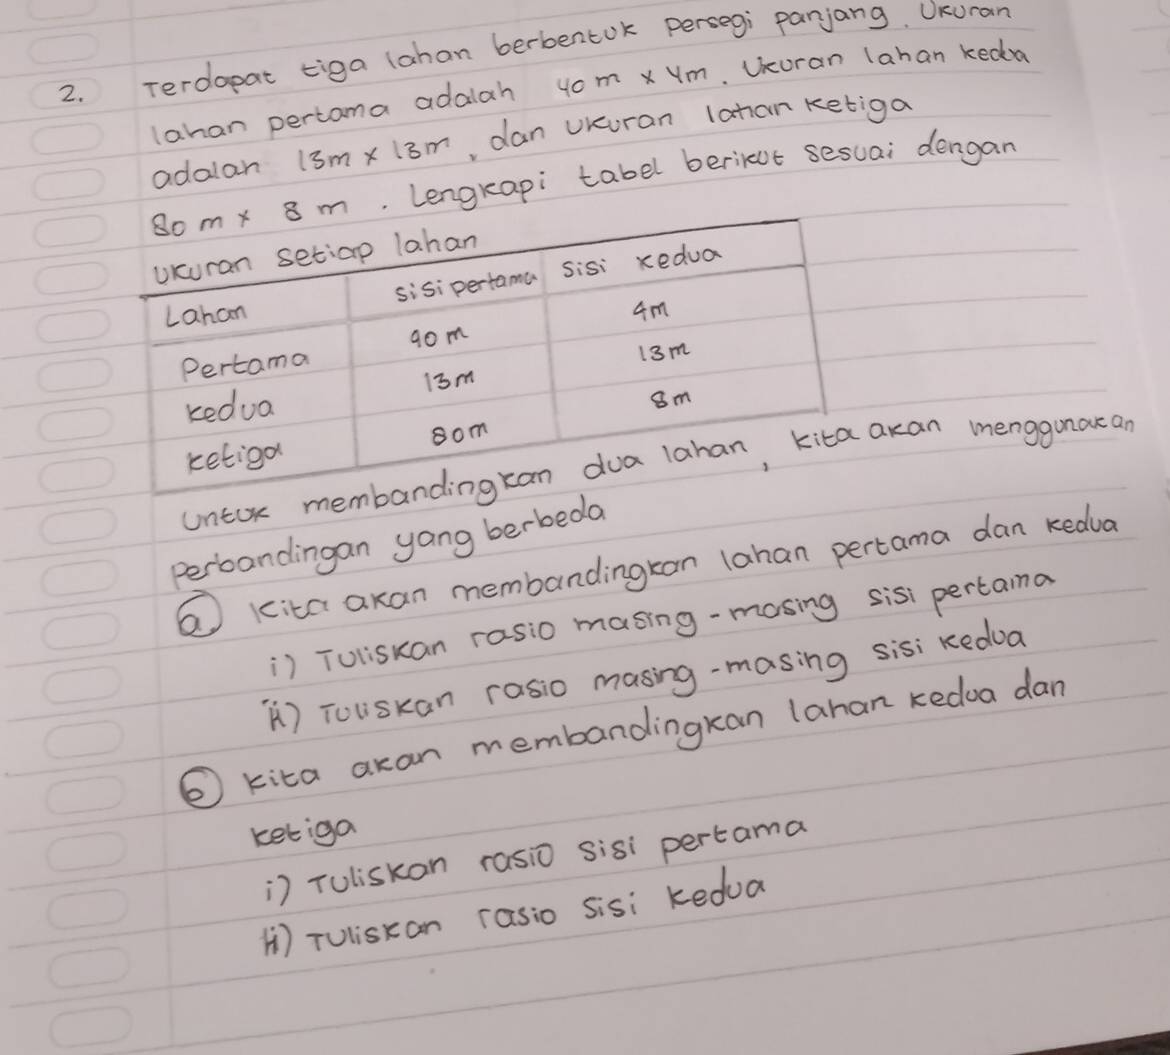 2. Terdapat tiga lahan berbentuk persegi panjang. Ukuran
lahan pertama adalah 40 m x 4m. Ukuran lahan kedua
adalah 13m x 13m, dan ukuran lahan ketiga
80 m x 8 m. Lengkapi tabel berikut sesuai dengan
ukuran setiap lahan
Lahan sisi pertama sisi kedua
Pertama 40 m 4m
kedua 13m 13m
ketiga 80m 8m
Untuk membandingkan dua lahan, kita akan menggunakan
perbandingan yang berbeda
a) Kita akan membandingkan lahan pertama dan kedua
i) Tuliskan rasio masing-masing sisi pertama
ii) Tuliskan rasio masing-masing sisi kedua
b) kita akan membandingkan lahan kedua dan
ketiga
i) Tuliskan rasio sisi pertama
ii) Tuliskan rasio sisi kedua